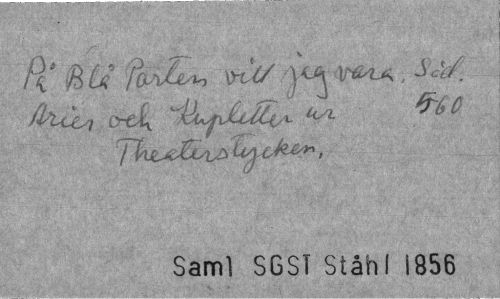 På Blå Porten vill jag vara. Sid.
Arier och Kupletter ur 560
Theaterstycken.
Saml SGST Ståhl 1856